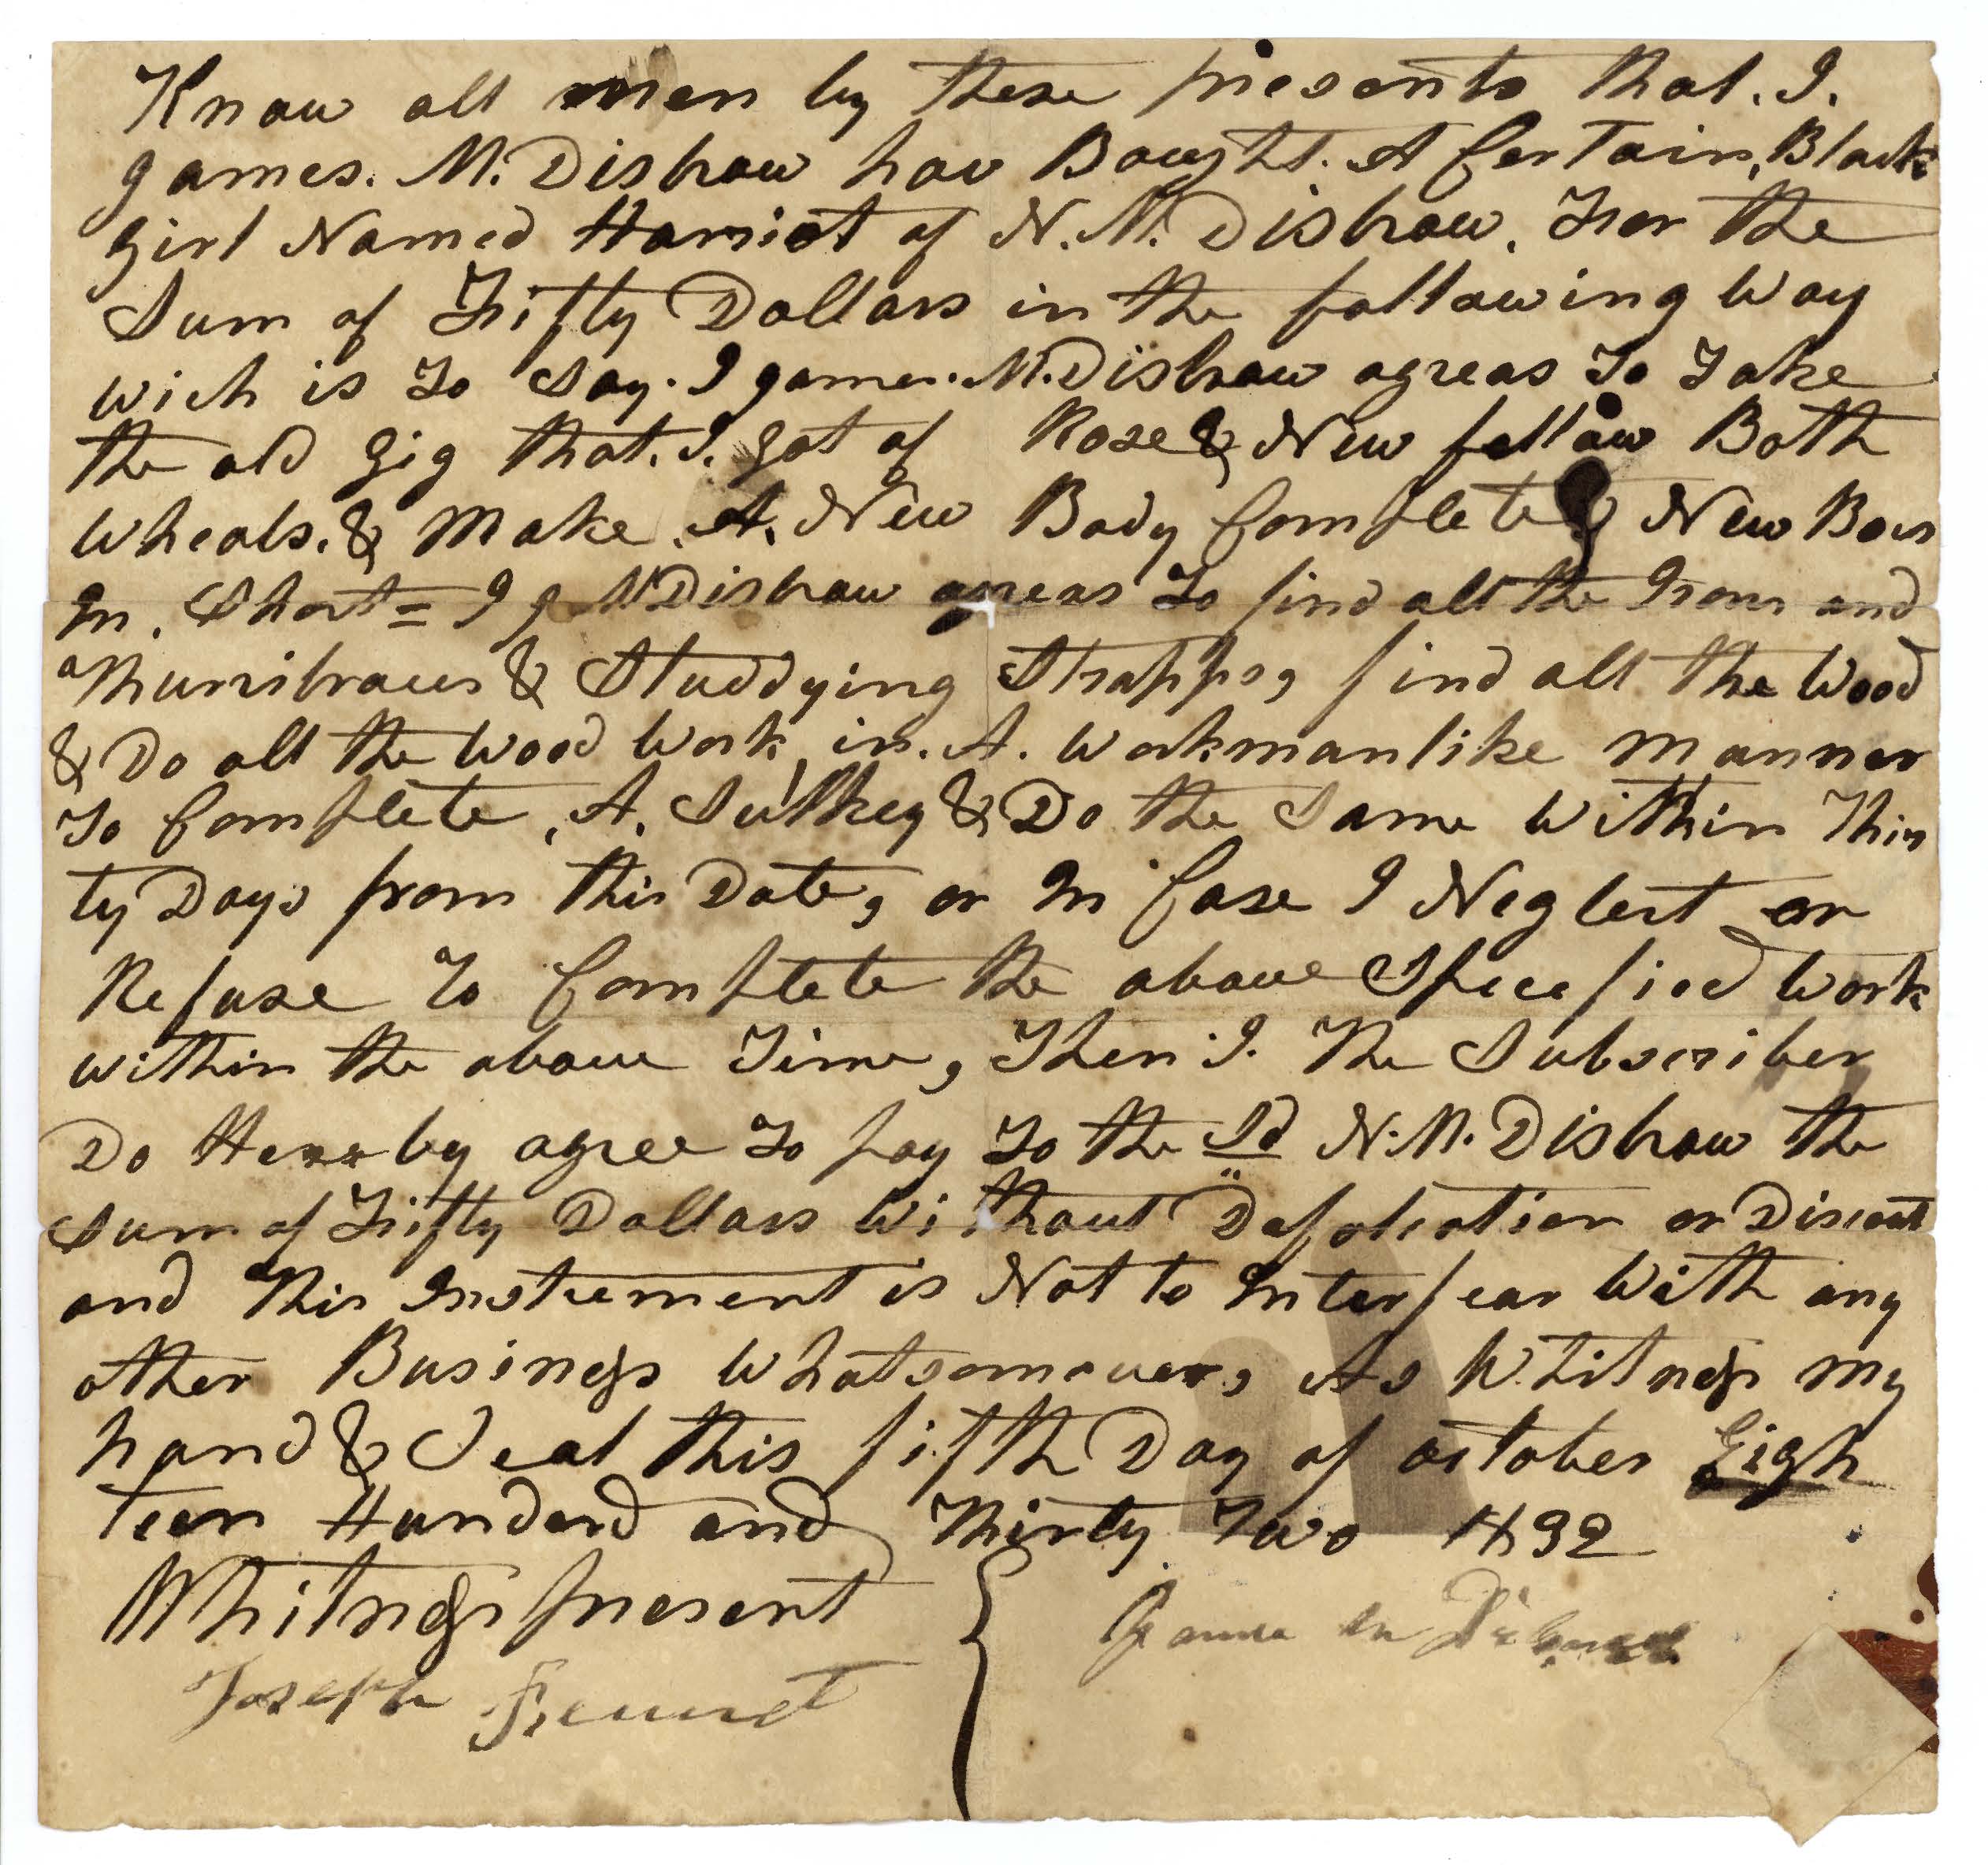 Know all men by these presents that. I.
James. M. Disbrow hav Bought. A Certain, Black
Girl Named Harriet of N. M. Disbrow. For the
Sum of Fifty Dollars in the following way
wich is To Say. I James. M. Disbrow agreas To Take
the old Gig that. I. Got of Rose & New fellow Both
Wheals. & Make. A. New Body Complete & New Bows
In. Short = I J M Disbrow agreas To find all the Irons and
& Studdying Strapps, find all the Wood
& Do all the Wood Work, in. A. Workmanlike Manner
To Complete, A. Sulkey & Do the Same Within Thir
ty Days from this Date, or In Case I Neglect or
Refuse To Complete the above Specefied Work
within the above Time, Then I. The Subscriber
Do Hereby agree To pay To the Sd N. M. Disbrow the
Sum of Fifty Dollars Without Defolcation or Discount
and this Instrement is Not to Interfear With any
other Business Whatsomever, As Whitness my
hand & Seal this fifth Day of october Eigh
teen Hunderd and Thirty Two 1832
Whitness present
James M Disbrow
Joseph